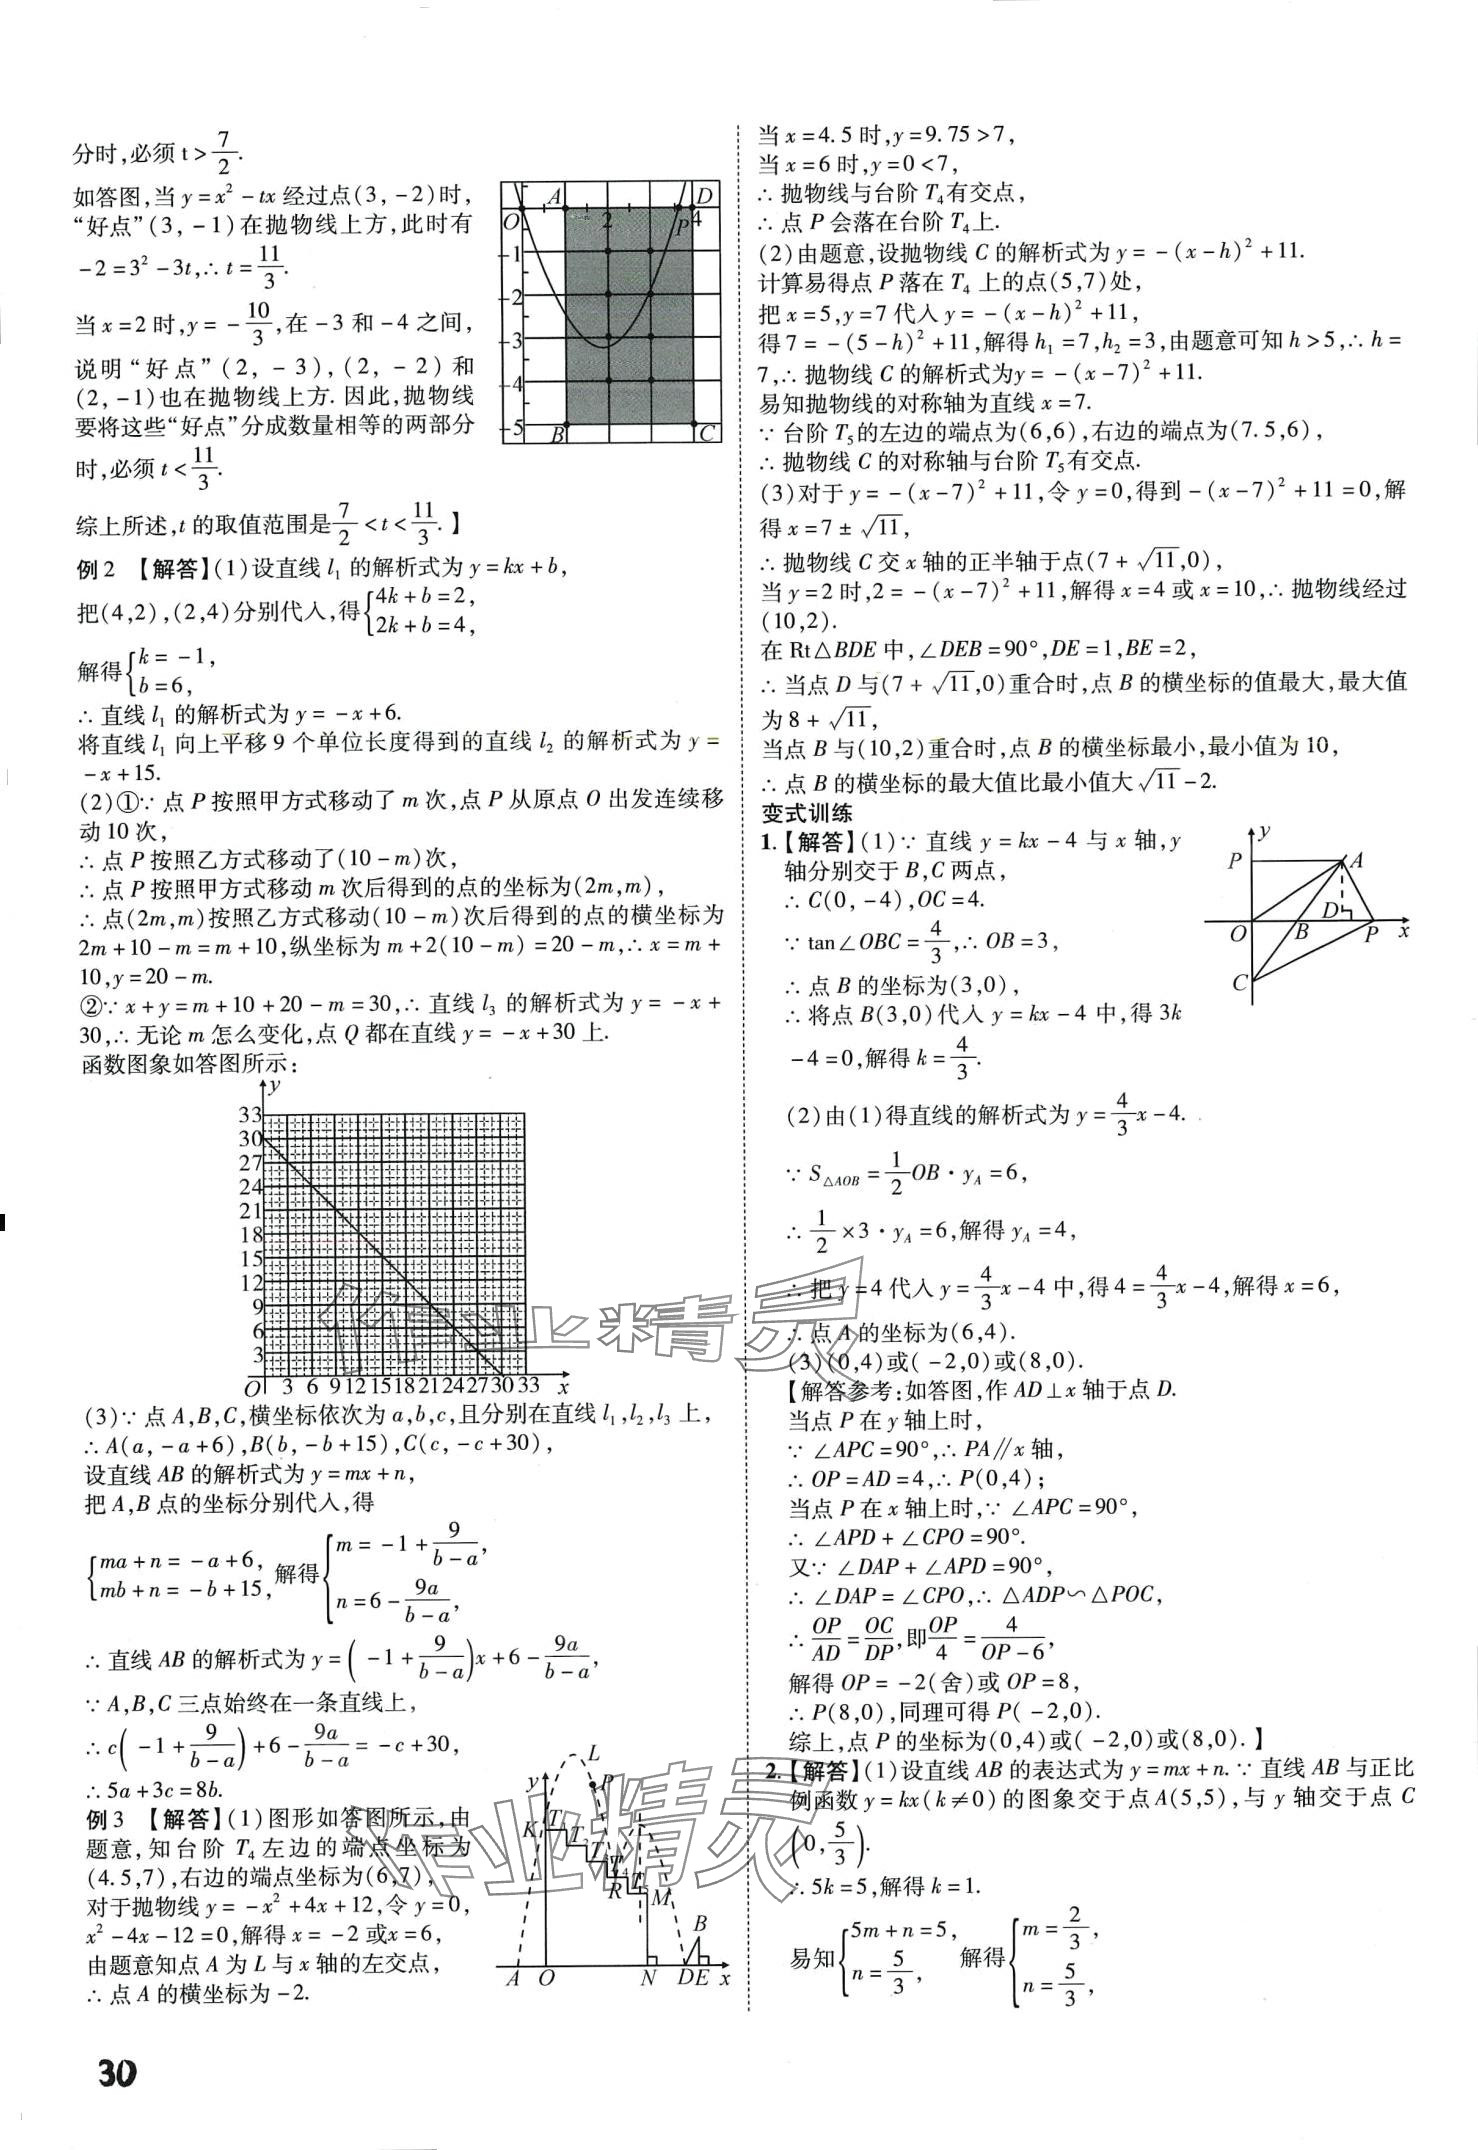 分时,必须 t > 7/2.
如答图,当 y = x² - tx 经过点(3, -2)时,
“好点”(3, -1)在抛物线上方,此时有
-2 = 3² - 3t,∴ t = 11/3.
当 x = 2 时,y = -10/3,在 -3 和 -4 之间,
说明“好点”(2, -3),(2, -2)和
(2, -1)也在抛物线上方. 因此,抛物线
要将这些“好点”分成数量相等的两部分
时,必须 t < 11/3.
A D
O 2 P 4
-1
-2
-3
-4
-5 B C
综上所述,t 的取值范围是 7/2 < t < 11/3. 】
例 2 【解答】(1)设直线 l₁ 的解析式为 y = kx + b,
把(4,2),(2,4)分别代入,得{4k + b = 2, 2k + b = 4,
解得{k = -1, b = 6,
∴ 直线 l₁ 的解析式为 y = -x + 6.
将直线 l₁ 向上平移 9 个单位长度得到的直线 l₂ 的解析式为 y =
-x + 15.
(2)①∵ 点 P 按照甲方式移动了 m 次,点 P 从原点 O 出发连续移
动 10 次,
∴ 点 P 按照乙方式移动了(10 - m)次,
∴ 点 P 按照甲方式移动 m 次后得到的点的坐标为(2m,m),
∴ 点(2m,m)按照乙方式移动(10 - m)次后得到的点的横坐标为
2m + 10 - m = m + 10,纵坐标为 m + 2(10 - m) = 20 - m,∴ x = m +
10,y = 20 - m.
②∵ x + y = m + 10 + 20 - m = 30,∴ 直线 l₃ 的解析式为 y = -x +
30,∴ 无论 m 怎么变化,点 Q 都在直线 y = -x + 30 上.
函数图象如答图所示:
y
33
30
27
24
21
18
15
12
9
6
3
O 3 6 9 12 15 18 21 24 27 30 33 x
(3)∵ 点 A,B,C,横坐标依次为 a,b,c,且分别在直线 l₁,l₂,l₃ 上,
∴ A(a, -a + 6),B(b, -b + 15),C(c, -c + 30),
设直线 AB 的解析式为 y = mx + n,
把 A,B 点的坐标分别代入,得
{ma + n = -a + 6, mb + n = -b + 15, 解得{m = -1 + 9/(b - a), n = 6 - 9a/(b - a),
∴ 直线 AB 的解析式为 y = (-1 + 9/(b - a))x + 6 - 9a/(b - a),
∵ A,B,C 三点始终在一条直线上,
∴ c(-1 + 9/(b - a)) + 6 - 9a/(b - a) = -c + 30,
∴ 5a + 3c = 8b.
例 3 【解答】(1)图形如答图所示,由
题意,知台阶 T₄ 左边的端点坐标为
(4.5,7),右边的端点坐标为(6,7),
对于抛物线 y = -x² + 4x + 12,令 y = 0,
x² - 4x - 12 = 0,解得 x = -2 或 x = 6,
由题意知点 A 为 L 与 x 轴的左交点,
∴ 点 A 的横坐标为 -2.
y L P
K T₁ T₂
R M B
A O N D E x
30
当 x = 4.5 时,y = 9.75 > 7,
当 x = 6 时,y = 0 < 7,
∴ 抛物线与台阶 T₄ 有交点,
∴ 点 P 会落在台阶 T₄ 上.
(2)由题意,设抛物线 C 的解析式为 y = -(x - h)² + 11.
计算易得点 P 落在 T₄ 上的点(5,7)处,
把 x = 5,y = 7 代入 y = -(x - h)² + 11,
得 7 = -(5 - h)² + 11,解得 h₁ = 7,h₂ = 3,由题意可知 h > 5,∴ h =
7,∴ 抛物线 C 的解析式为 y = -(x - 7)² + 11.
易知抛物线的对称轴为直线 x = 7.
∵ 台阶 T₅ 的左边的端点为(6,6),右边的端点为(7.5,6),
∴ 抛物线 C 的对称轴与台阶 T₅ 有交点.
(3)对于 y = -(x - 7)² + 11,令 y = 0,得到 -(x - 7)² + 11 = 0,解
得 x = 7 ± √11,
∴ 抛物线 C 交 x 轴的正半轴于点(7 + √11,0),
当 y = 2 时,2 = -(x - 7)² + 11,解得 x = 4 或 x = 10,∴ 抛物线经过
(10,2).
在 Rt△BDE 中,∠DEB = 90°,DE = 1,BE = 2,
∴ 当点 D 与(7 + √11,0)重合时,点 B 的横坐标的值最大,最大值
为 8 + √11,
当点 B 与(10,2)重合时,点 B 的横坐标最小,最小值为 10,
∴ 点 B 的横坐标的最大值比最小值大 √11 - 2.
变式训练
1.【解答】(1)∵ 直线 y = kx - 4 与 x 轴,y
轴分别交于 B,C 两点,
∴ C(0, -4),OC = 4.
∵ tan∠OBC = 4/3,∴ OB = 3,
∴ 点 B 的坐标为(3,0),
∴ 将点 B(3,0)代入 y = kx - 4 中,得 3k
-4 = 0,解得 k = 4/3.
y
P A
D
O B P x
C
(2)由(1)得直线的解析式为 y = 4/3 x - 4.
∵ S△AOB = 1/2 OB · yA = 6,
∴ 1/2 × 3 · yA = 6,解得 yA = 4,
∴ 把 y = 4 代入 y = 4/3 x - 4 中,得 4 = 4/3 x - 4,解得 x = 6,
∴ 点 A 的坐标为(6,4).
(3)(0,4)或( -2,0)或(8,0).
【解答参考:如答图,作 AD⊥x 轴于点 D.
当点 P 在 y 轴上时,
∵ ∠APC = 90°,∴ PA∥x 轴,
∴ OP = AD = 4,∴ P(0,4);
当点 P 在 x 轴上时,∵ ∠APC = 90°,
∴ ∠APD + ∠CPO = 90°.
又∵ ∠DAP + ∠APD = 90°,
∴ ∠DAP = ∠CPO,∴ △ADP∽△POC,
∴ OP/AD = OC/DP,即 OP/4 = 4/(OP - 6),
解得 OP = -2(舍)或 OP = 8,
∴ P(8,0),同理可得 P( -2,0).
综上,点 P 的坐标为(0,4)或( -2,0)或(8,0). 】
2.【解答】(1)设直线 AB 的表达式为 y = mx + n. ∵ 直线 AB 与正比
例函数 y = kx(k ≠ 0)的图象交于点 A(5,5),与 y 轴交于点 C
(0, 5/3).
∴ 5k = 5,解得 k = 1.
易知{5m + n = 5, n = 5/3, 解得{m = 2/3, n = 5/3,
作业精灵
作业精灵